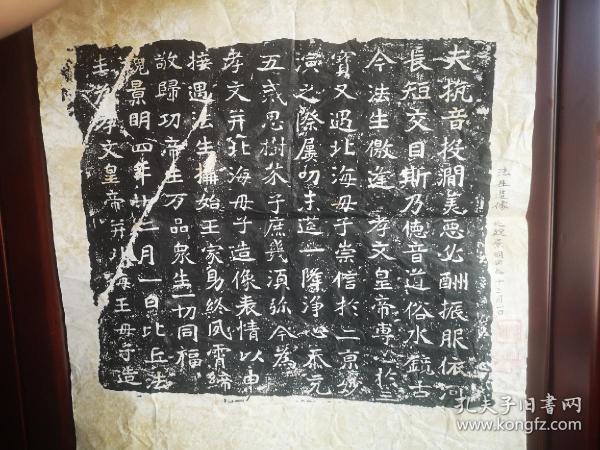 法生造像 北魏景明四年十二月一日
夫抗音投澗美惡必酬振服依河
長短交目斯乃德音道俗水鏡古
今法生儌逢 孝文皇帝專心於三
寶又遇北海母子崇信於二京妙
演之際屢叨末筵一降淨心忝充
五戒思樹芥子庶幾須弥今為
孝文并北海母子造像表情以申
接遇法生構始王家助終夙霄締
敬歸功帝王万品眾生一切同福
魏景明四年十二月一日比丘法
生為孝文皇帝并北海王母子造
孔夫子旧书网
www.kongfz.com